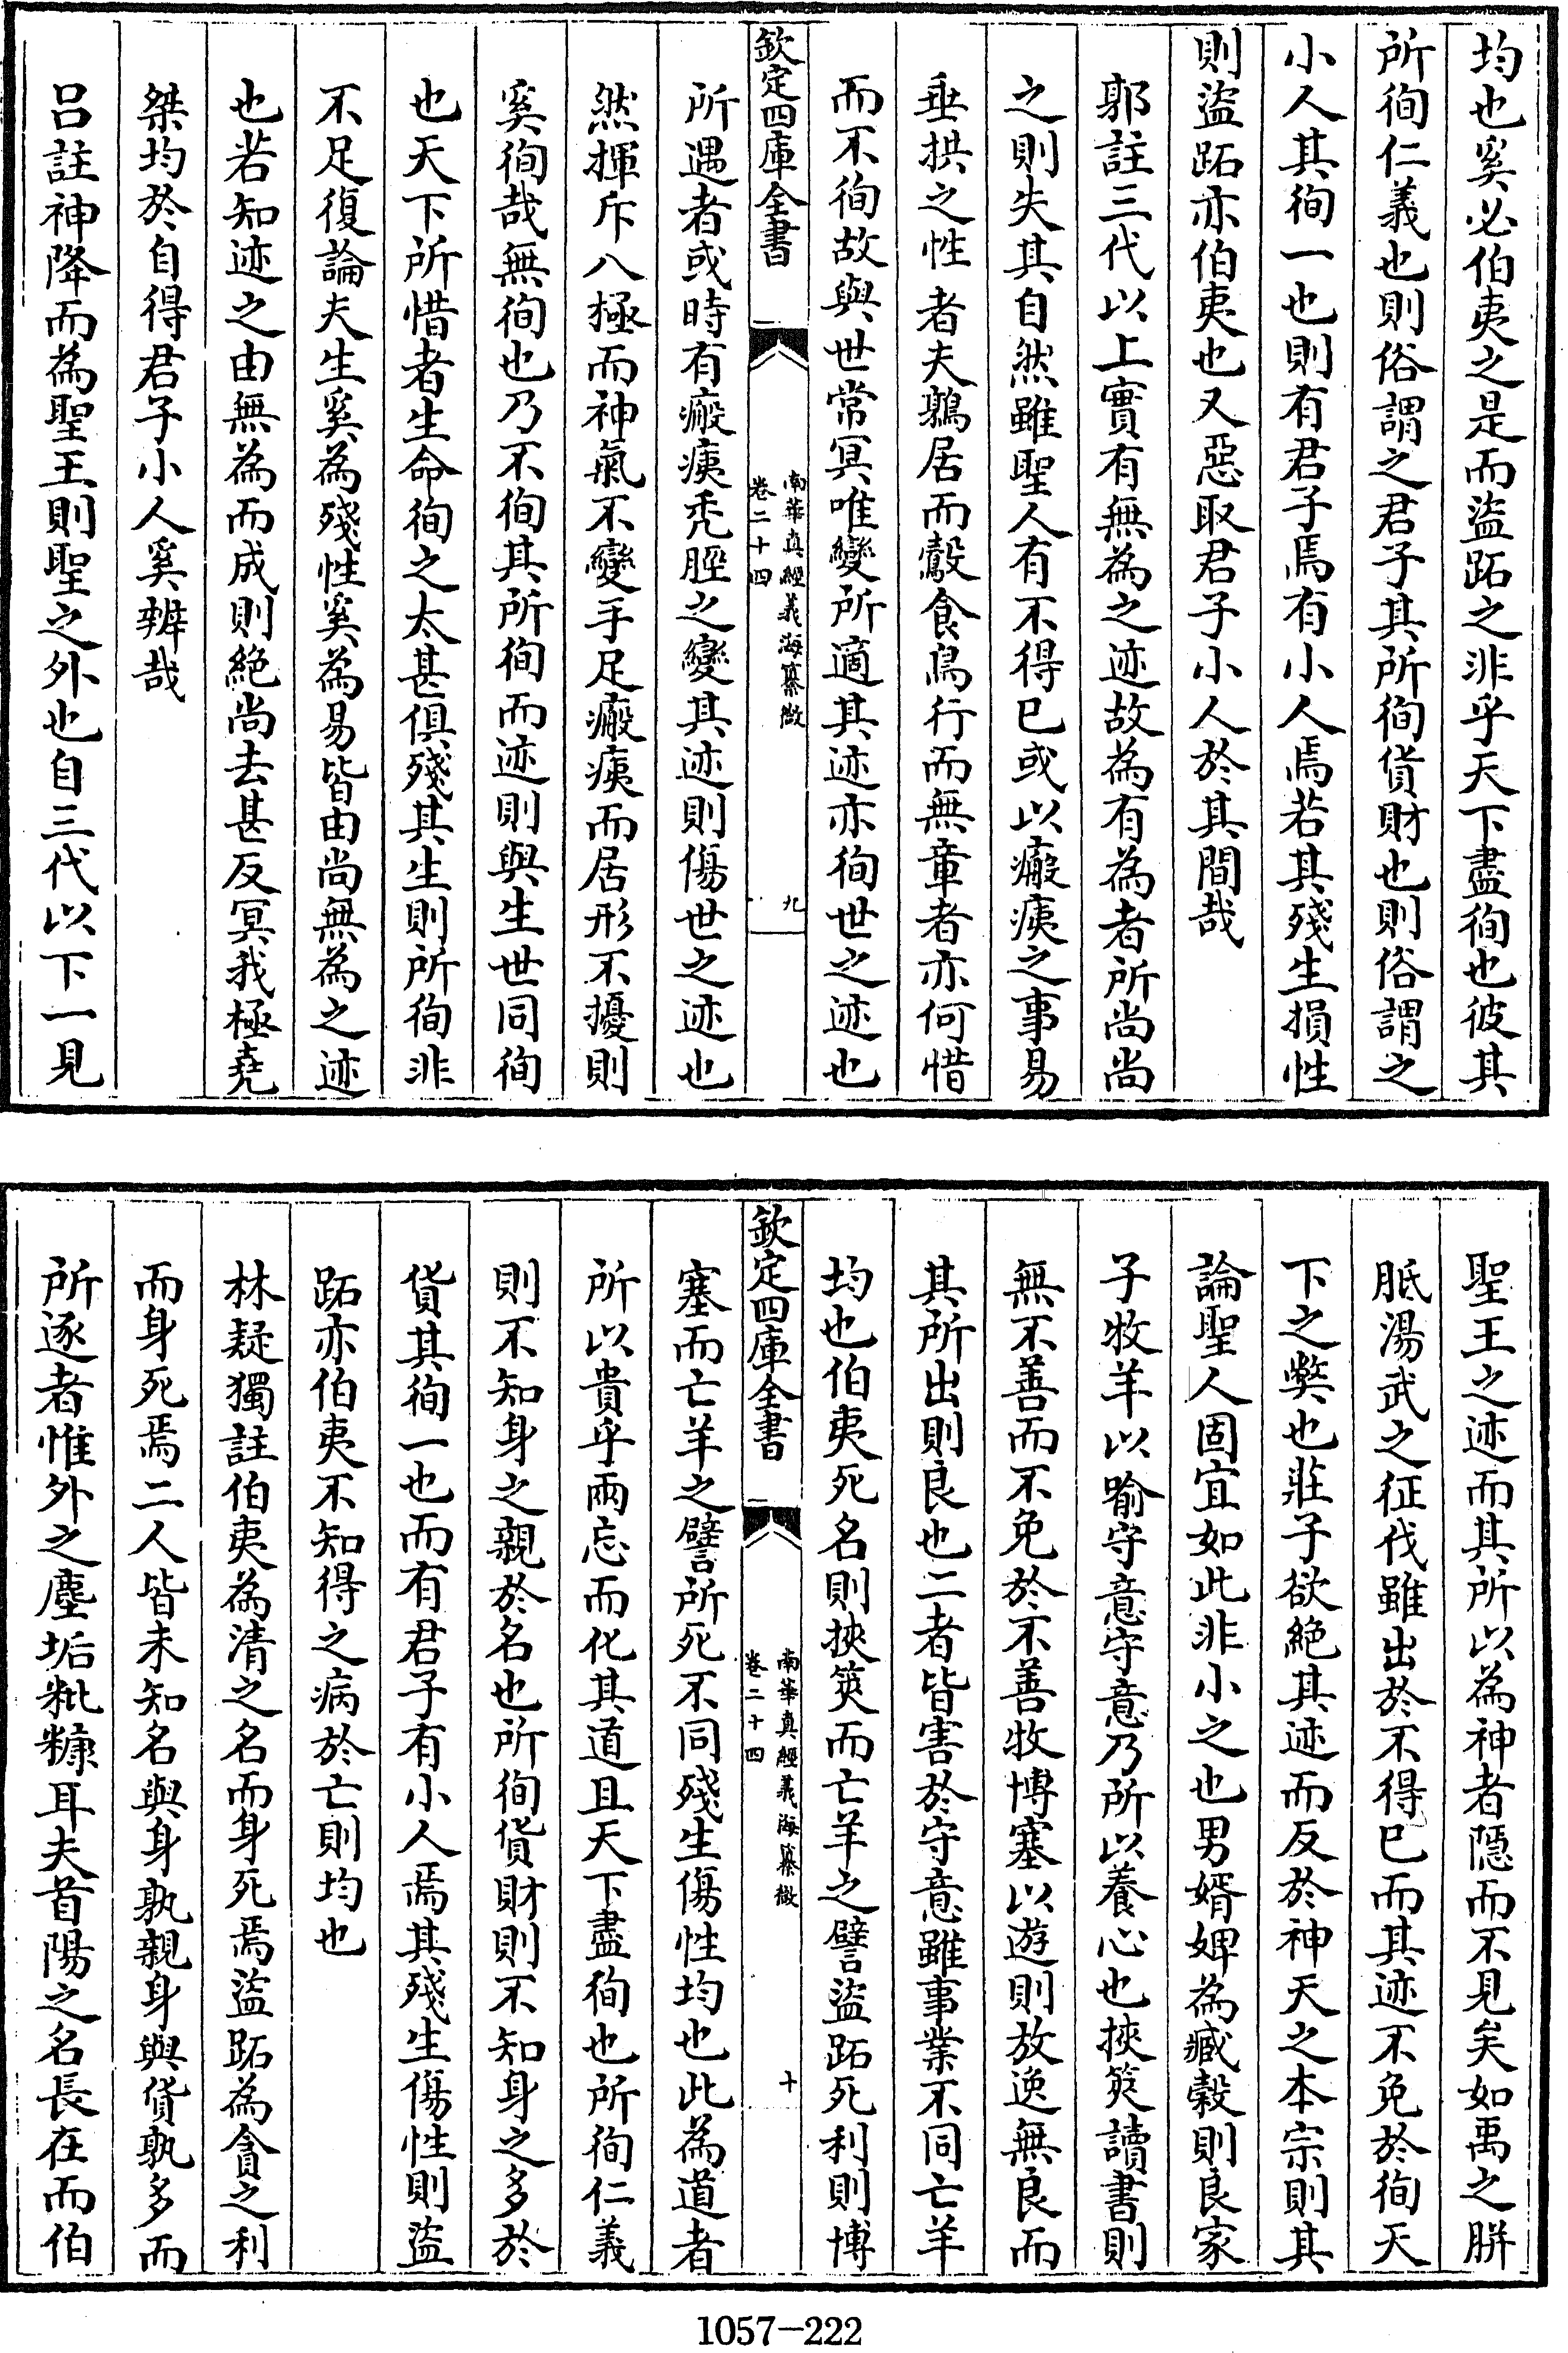 均也奚必伯夷之是而盜跖之非乎天下盡徇也彼其
所徇仁義也則俗謂之君子其所徇貨財也則俗謂之
小人其徇一也則有君子焉有小人焉若其殘生損性
則盜跖亦伯夷也又惡取君子小人於其間哉
郭註三代以上實有無為之迹故為有為者所尚尚
之則失其自然雖聖人有不得已或以瘢痍之事易
垂拱之性者夫鶉居而鷇食鳥行而無章者亦何惜
而不徇故與世常冥唯變所適其迹亦徇世之迹也
欽定四庫全書
南華真經義海纂微
卷二十四
九
所遇者或時有瘢痍禿脛之變其迹則傷世之迹也
然揮斥八極而神氣不變手足瘢痍而居形不擾則
奚徇哉無徇也乃不徇其所徇而迹則與生世同徇
也天下所惜者生命徇之太甚俱殘其生則所徇非
不足復論夫生奚為殘性奚為易皆由尚無為之迹
也若知迹之由無為而成則絕尚去甚反冥我極堯
桀均於自得君子小人奚辨哉
呂註神降而為聖王則聖之外也自三代以下一見
聖王之迹而其所以為神者隱而不見矣如禹之胼
胝湯武之征伐雖出於不得已而其迹不免於徇天
下之弊也莊子欲絕其迹而反於神天之本宗則其
論聖人固宜如此非小之也男婿婢為臧穀則良家
子牧羊以喻守意守意乃所以養心也挾筴讀書則
無不善而不免於不善牧博塞以遊則放逸無良而
其所出則良也二者皆害於守意雖事業不同亡羊
均也伯夷死名則挾筴而亡羊之譬盜跖死利則博
欽定四庫全書
南華真經義海纂微
卷二十四
十
塞而亡羊之譬所死不同殘生傷性均也此為道者
所以貴乎兩忘而化其道且天下盡徇也所徇仁義
則不知身之親於名也所徇貨財則不知身之多於
貨其徇一也而有君子有小人焉其殘生傷性則盜
跖亦伯夷不知得之病於亡則均也
林疑獨註伯夷為清之名而身死焉盜跖為貪之利
而身死焉二人皆未知名與身孰親身與貨孰多而
所逐者惟外之塵垢粃糠耳夫首陽之名長在而伯
1057-222